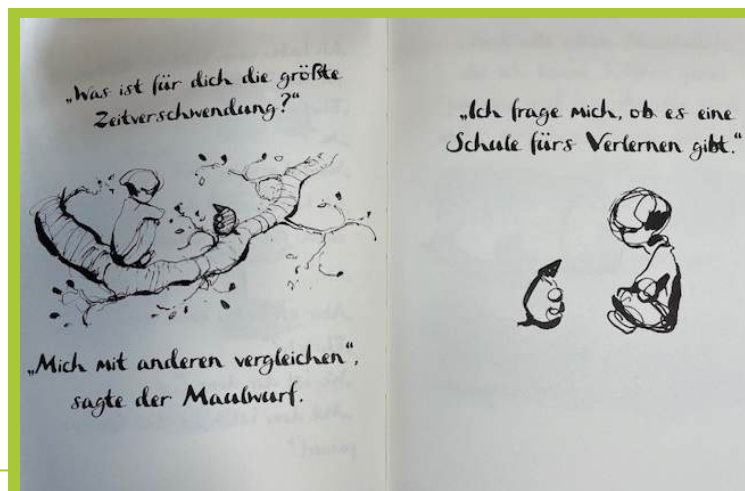 „Was ist für dich die größte
Zeitverschwendung?“
„Mich mit anderen vergleichen“,
sagte der Maulwurf.
„Ich frage mich, ob es eine
Schule fürs Verlernen gibt.“